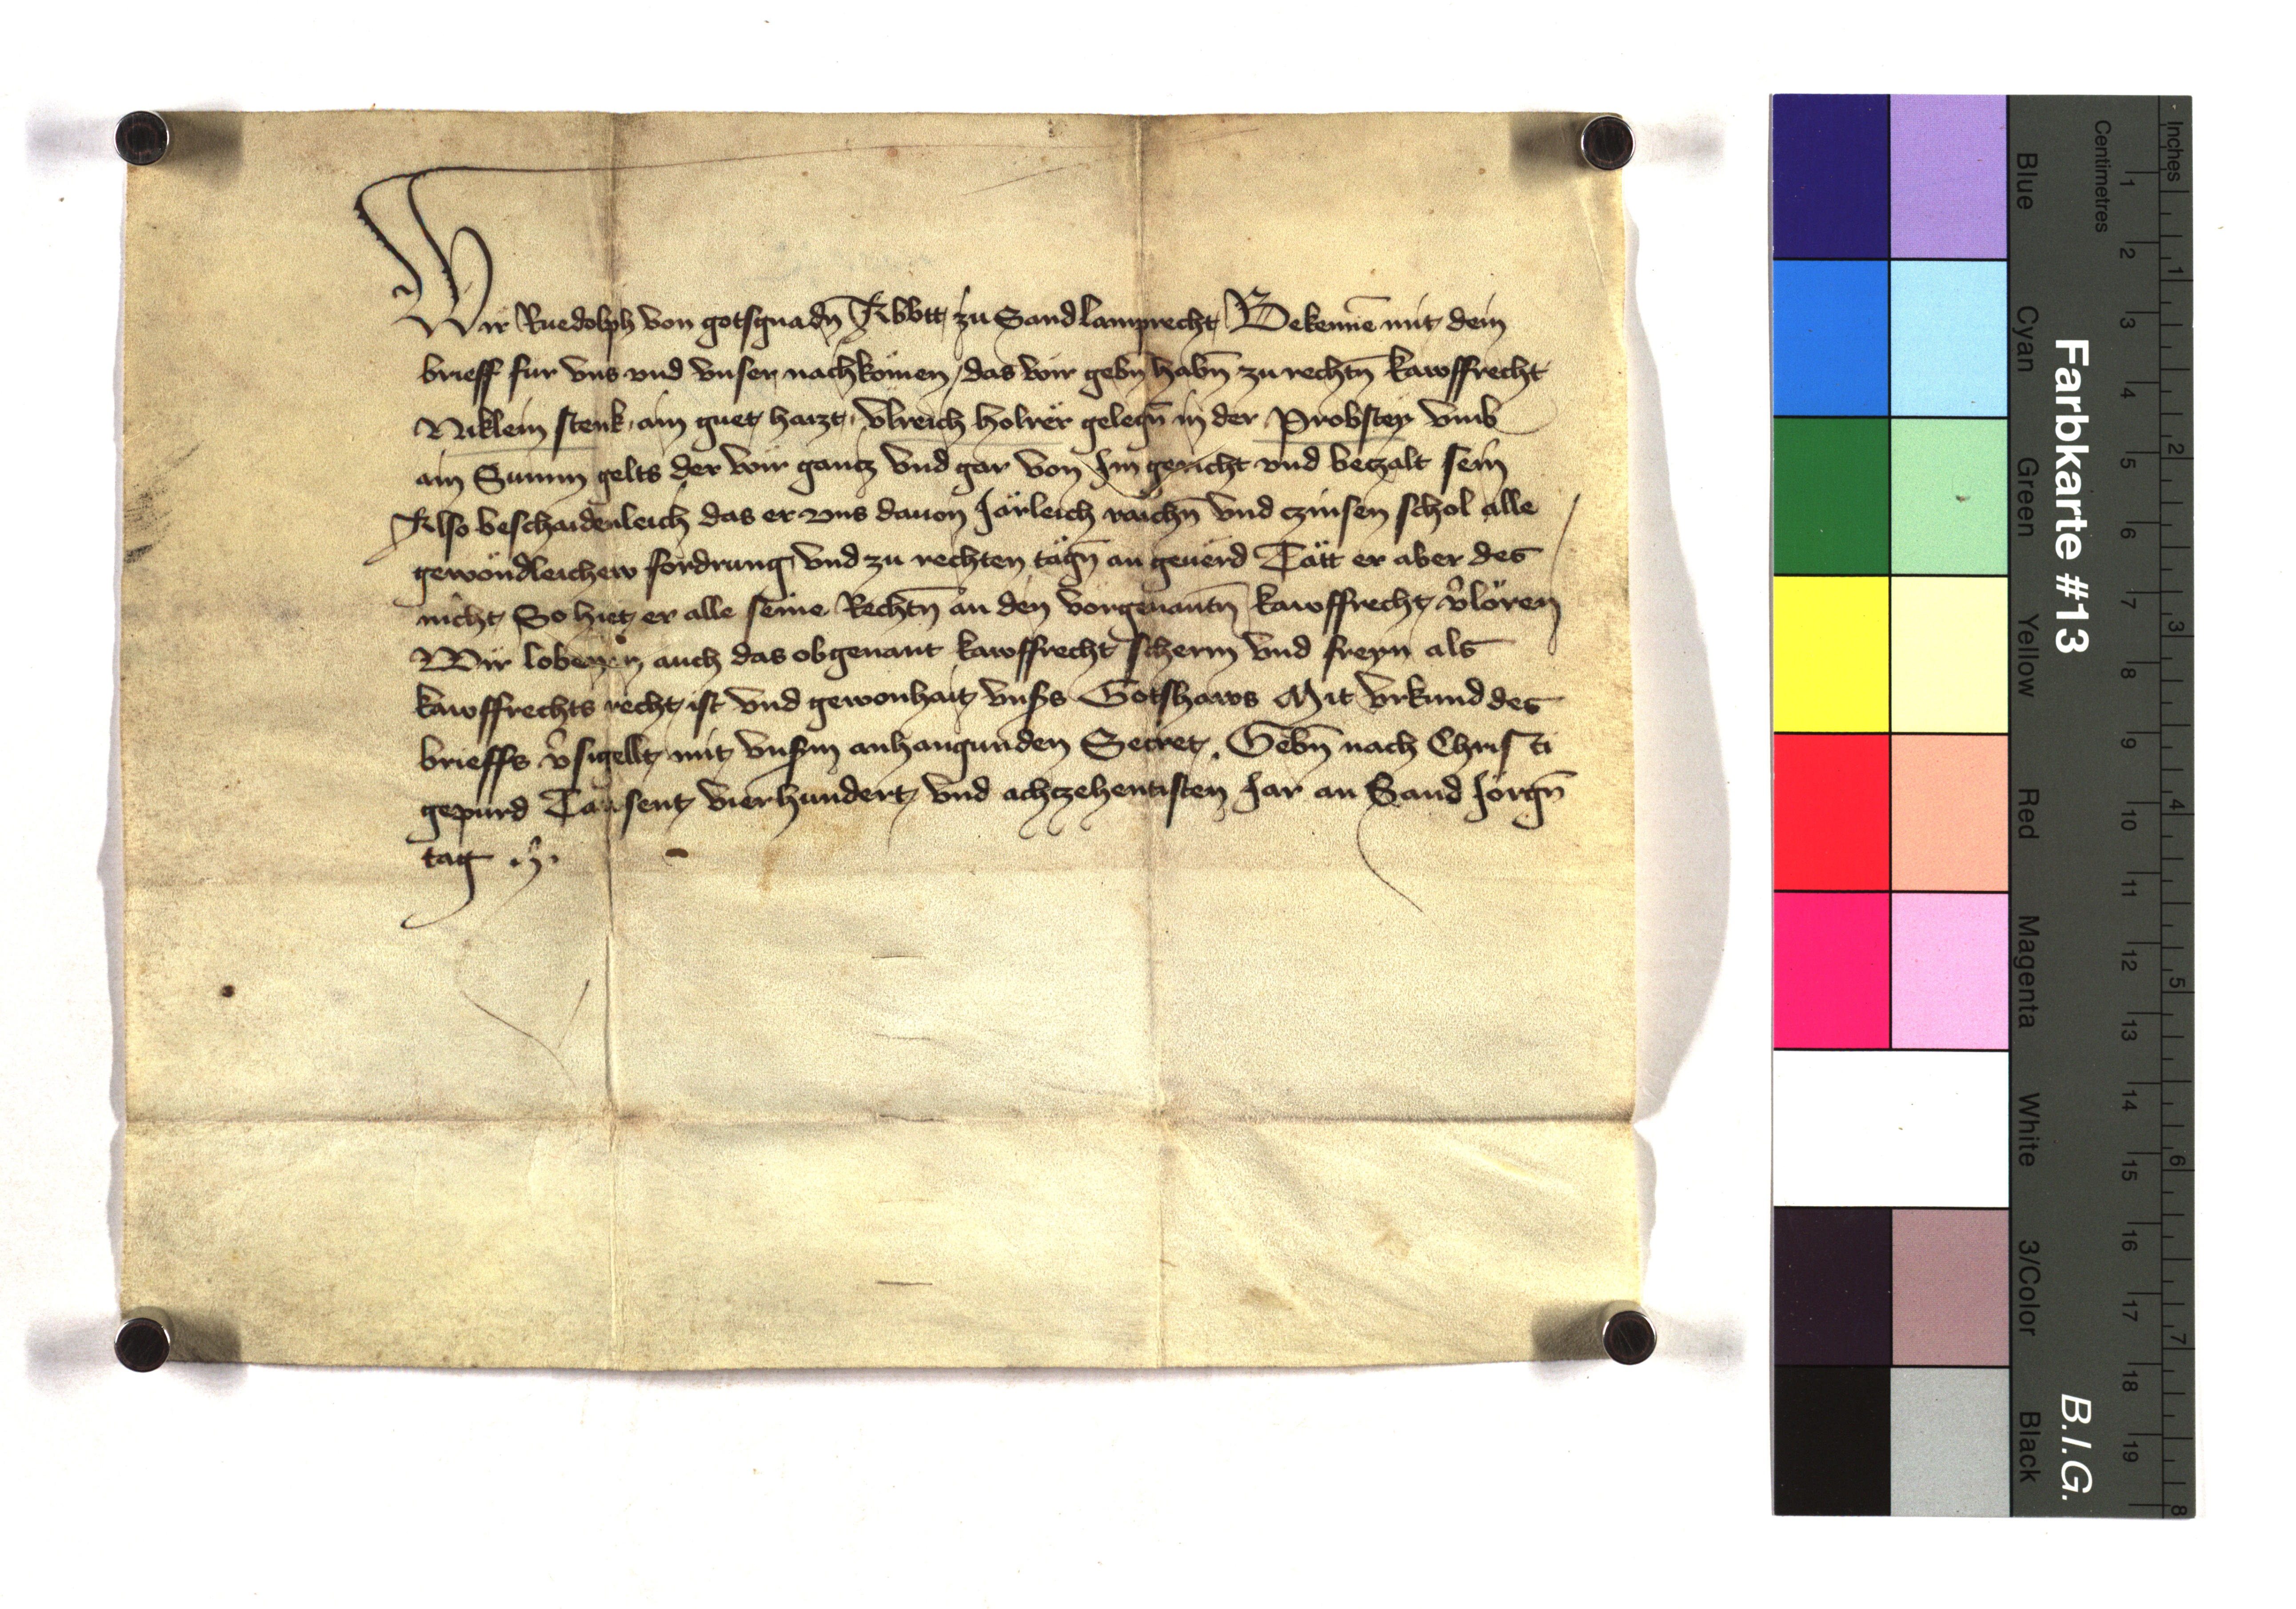 Wir Ruedolph von gotsgnadn̄ Abbtt zu Sand lamprecht Bekenne mit dem
brieff fur vns vnd vnser nachkömen das wir gebn̄ habn̄ zu rechtn̄ kawffrecht
Niklein stenk ain guet haizt vlreich holrër gelegn̄ in der Probstey vmb
ain Summ gelts der wir gancz vnd gar von Im gericht vnd beczalt sein
Also beschaidenleich das er vns dauon Järleich raichn̄ vnd czinsen schol alle
gewöndleichew fordrung vnd zu rechten tägn̄ an geuërd Tätt er aber des
nicht So hiet er alle seine Rechtn̄ an den vorgenantn̄ kawffrecht v̂loren
Wir loben auch das obgenant kawffrecht scherm vnd freyn als
kawffrechts recht ist vnd gewonhait vnsers Gotshaws Mit vrkund des
brieffs v̂sigellt mit vnserm anhangunden Secret Gebn̄ nach Christi
gepurd Tausent vierhundert vnd achczehentisten Jar an Sand Jörgn̄
tag
Farbkarte #13
B.I.G.
Inches
1 2 3 4 5 6 7 8
Centimetres
1 2 3 4 5 6 7 8 9 10 11 12 13 14 15 16 17 18 19
Blue Cyan Green Yellow Red Magenta White 3/Color Black